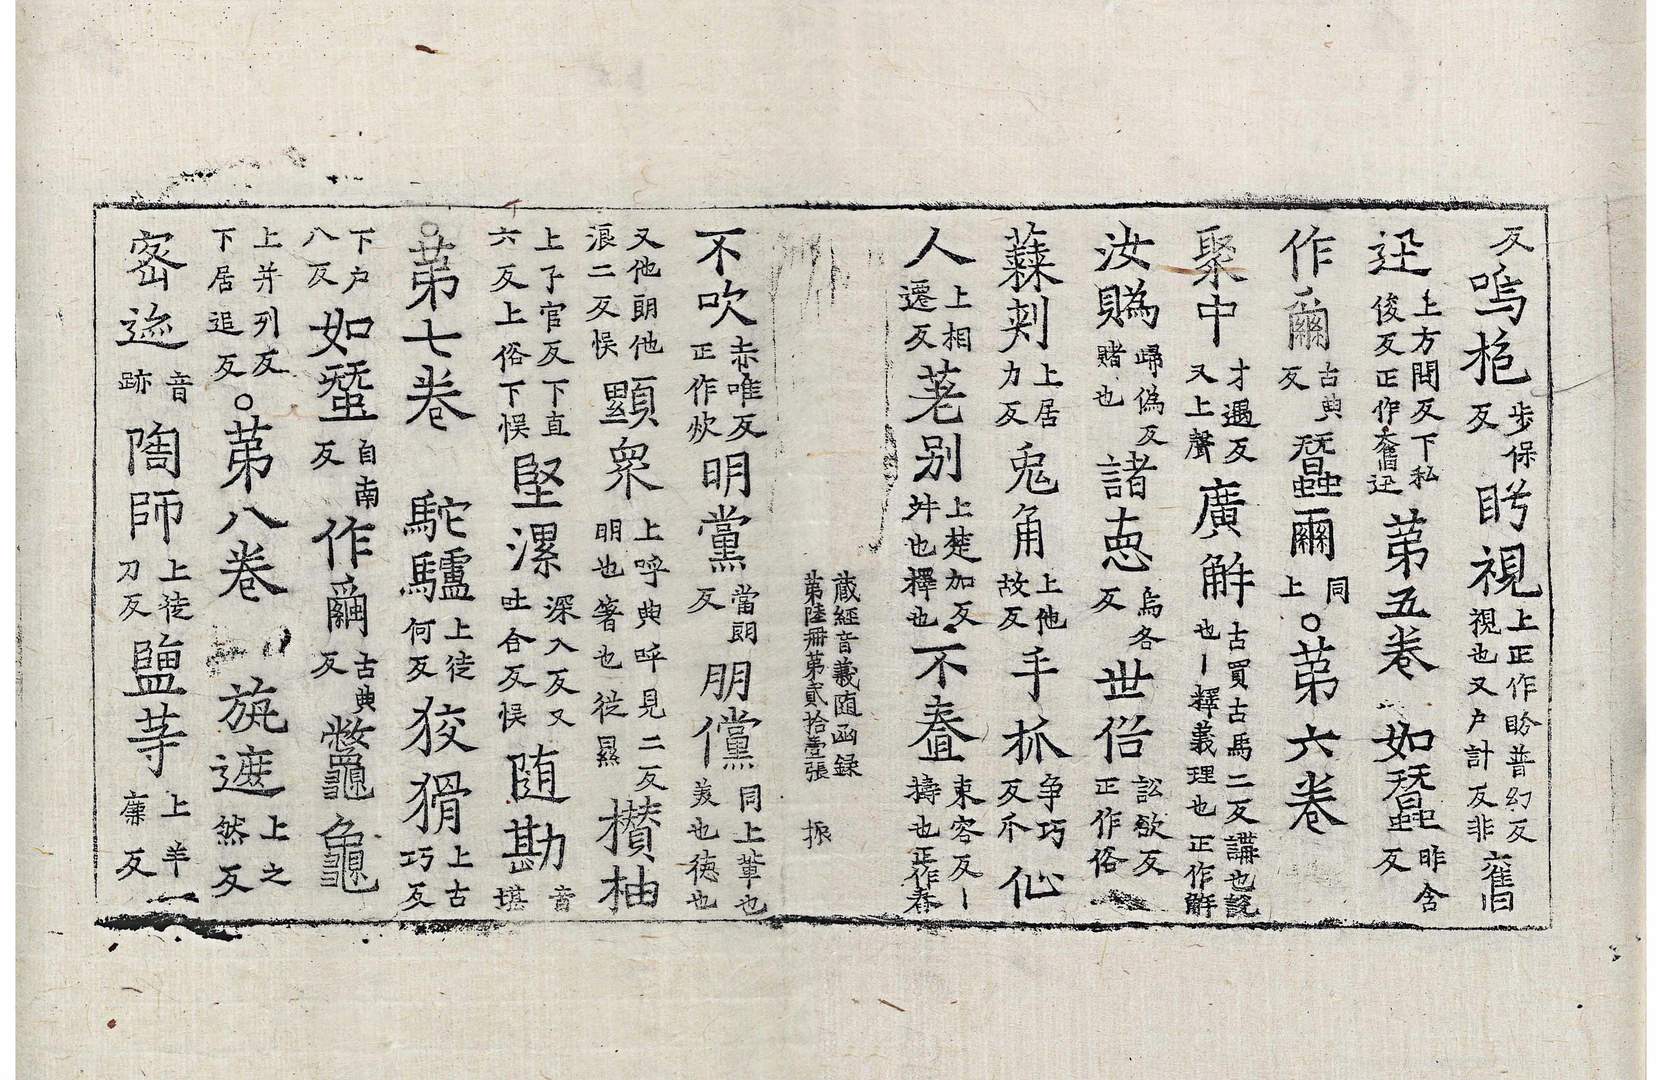 反嗚抱步保反眄視上正作盼普幻反視也又戶計反非舊
迅上方問反下私俊反正作奮迅第五卷如蠶昨含反
作𠕀古典反蠶𠕀同上○第六卷
聚中才遇反又上聲廣解古買古馬二反講也說也丨釋義理也正作解
汝賜歸偽反賭也諸惡烏各反世俗訟欲反正作俗
蘇剌上居力反兔角上他故反手抓爭巧反爪仙
人上相遷反荖別上楚加反舛也擇也不舂束容反丨擣也正作舂
藏經音義隨函録第陸冊第貳拾壹張 振
不吹赤唯反正作炊明黨當朗反朋儻同上輩也美也德也
又他朗他浪二反悮顯眾上呼典呼見二反明也著也從㬎攢柚
上子官反下直六反上俗下悮堅漯深入反又吐合反悮隨勘音堪
○第七卷 駝驢上徒何反狡猾上古巧反
下戶八反如蠶自南反作𠕀古典反鼈龜龜
上并列反下居追反○第八卷旃遮上之然反
密迹音跡陶師上徒刀反鹽䓁上羊廉反